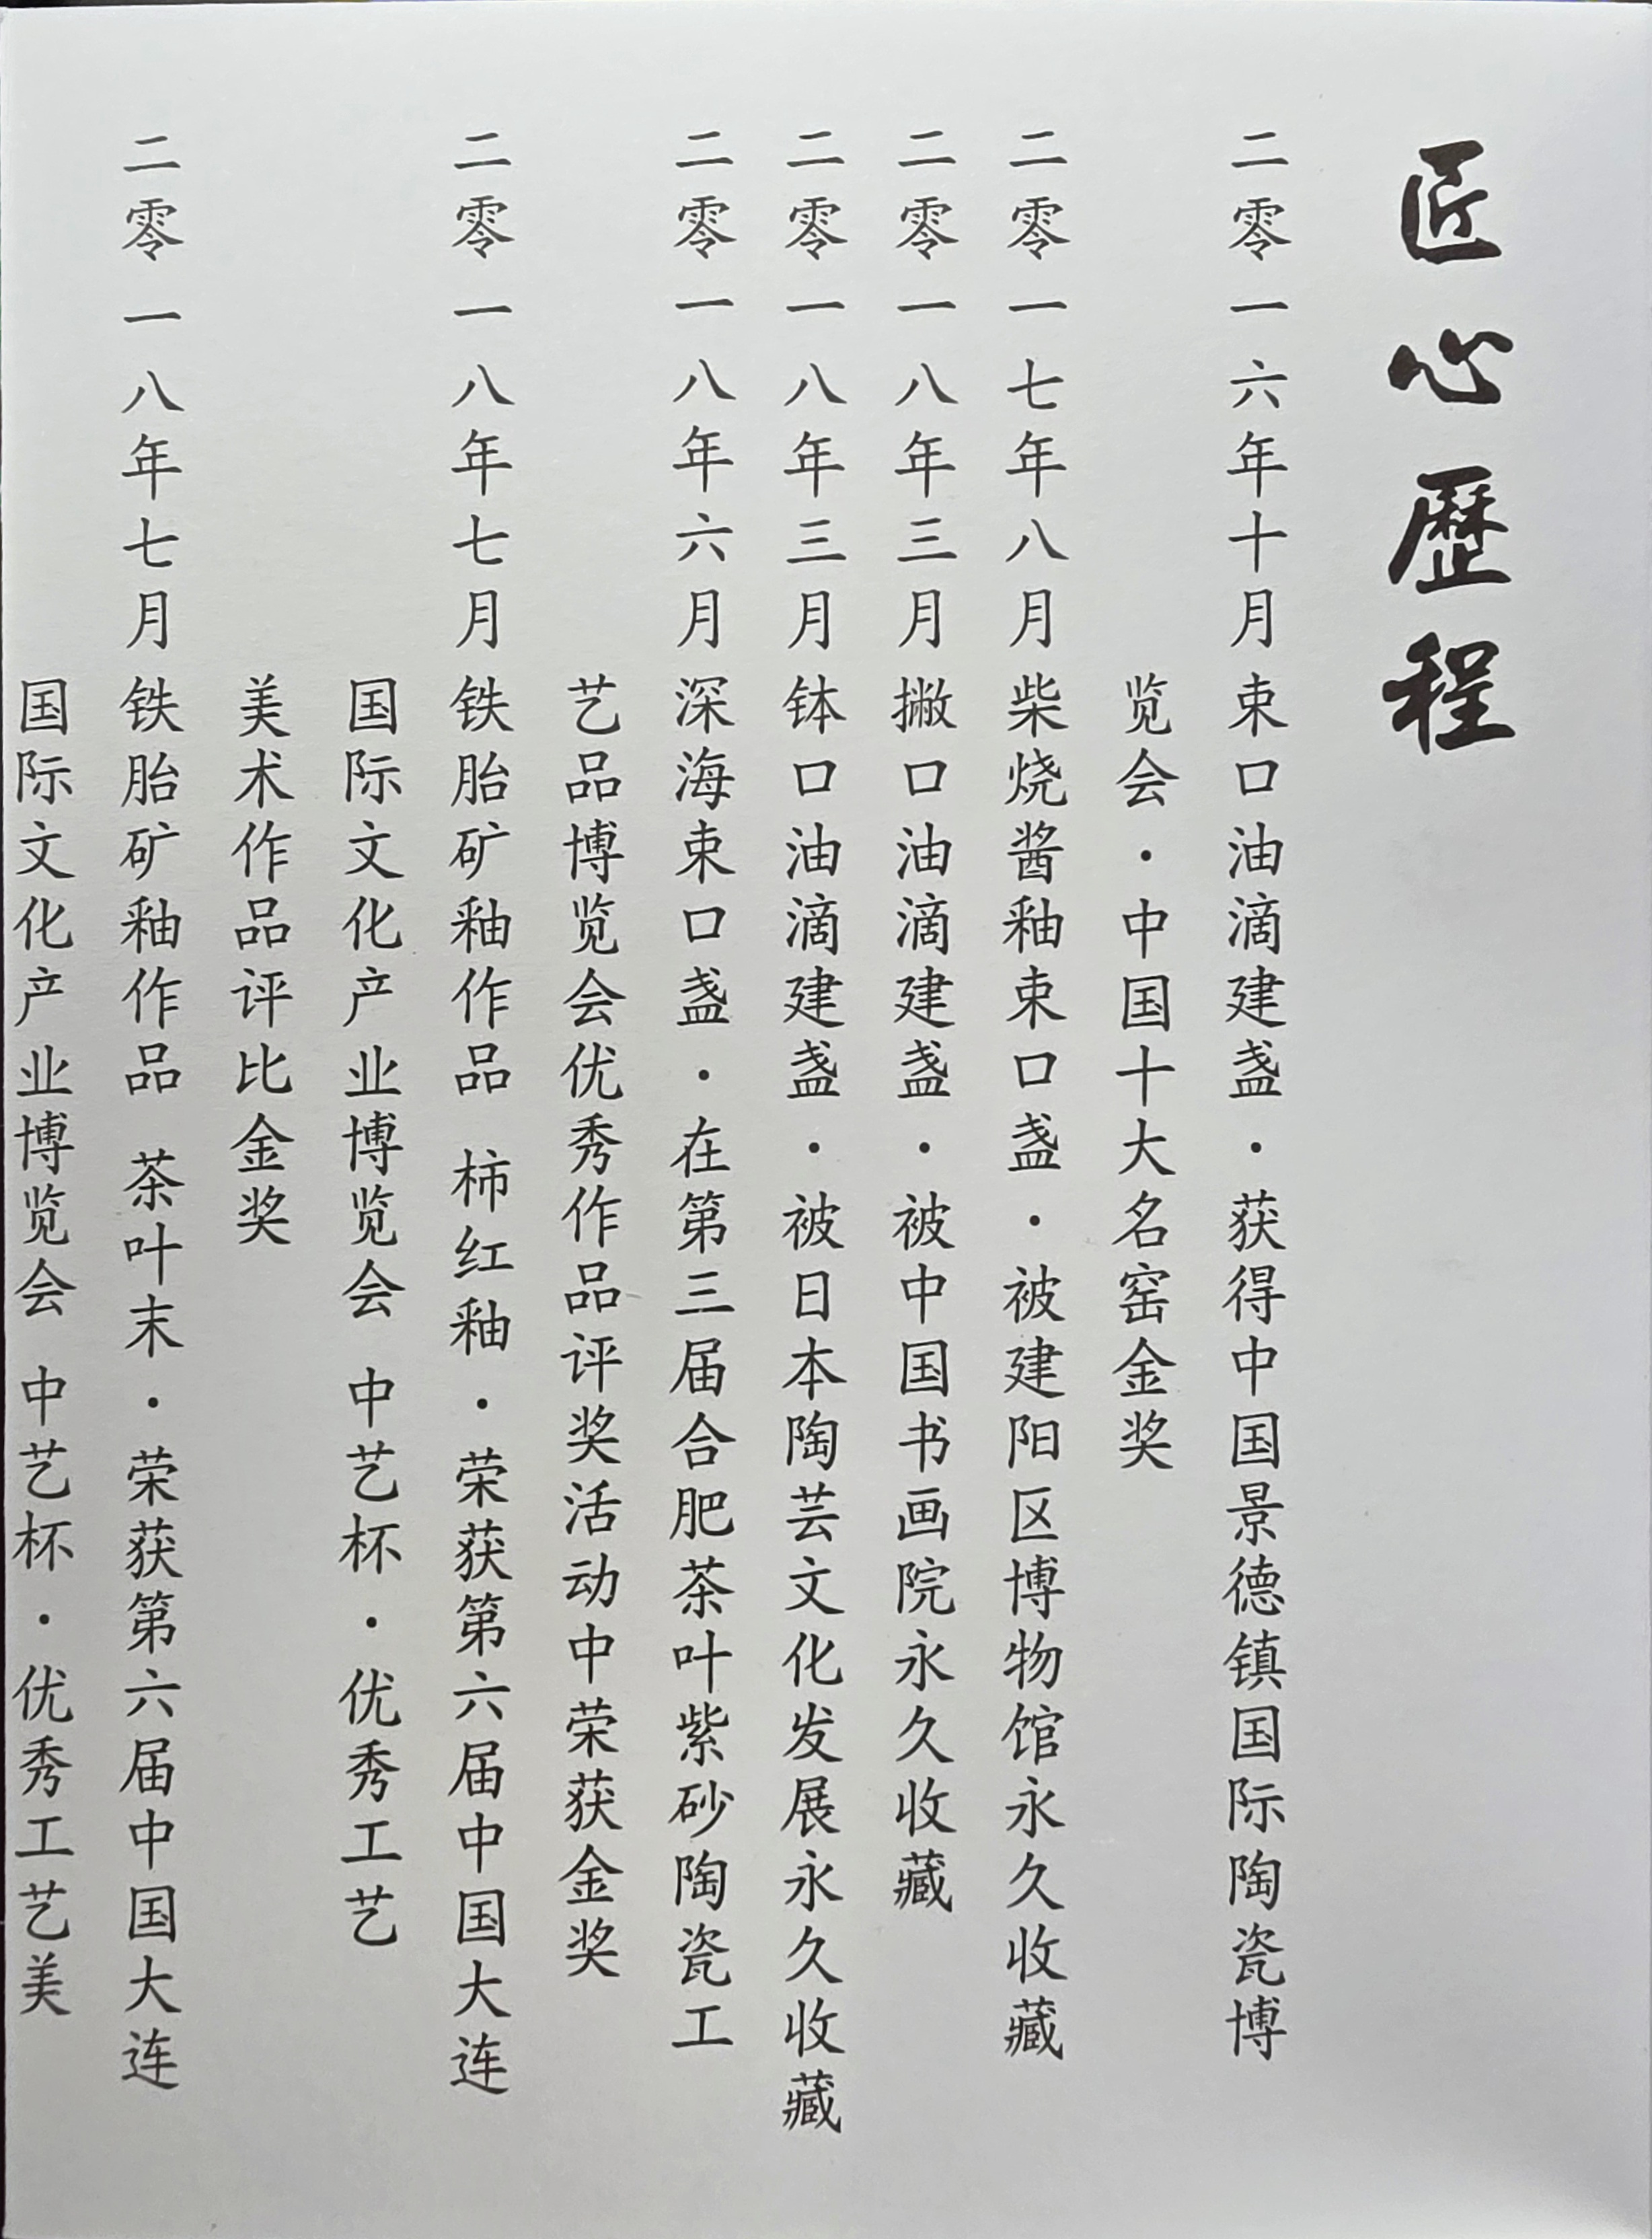 匠心歷程
二零一六年十月束口油滴建盏·获得中国景德镇国际陶瓷博
览会·中国十大名窑金奖
二零一七年八月柴烧酱釉束口盏·被建阳区博物馆永久收藏
二零一八年三月撇口油滴建盏·被中国书画院永久收藏
二零一八年三月钵口油滴建盏·被日本陶芸文化发展永久收藏
二零一八年六月深海束口盏·在第三届合肥茶叶紫砂陶瓷工
艺品博览会优秀作品评奖活动中荣获金奖
二零一八年七月铁胎矿釉作品 柿红釉·荣获第六届中国大连
国际文化产业博览会 中艺杯·优秀工艺
美术作品评比金奖
二零一八年七月铁胎矿釉作品 茶叶末·荣获第六届中国大连
国际文化产业博览会 中艺杯·优秀工艺美